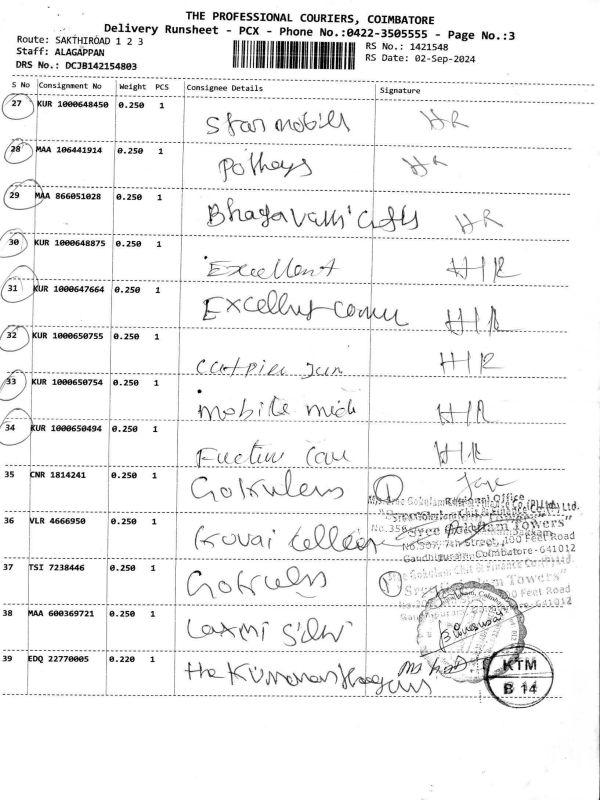 THE PROFESSIONAL COURIERS, COIMBATORE
Delivery Runsheet - PCX - Phone No.:0422-3505555 - Page No.:3
Route: SAKTHIROAD 1 2 3
RS No.: 1421548
Staff: ALAGAPPAN
RS Date: 02-Sep-2024
DRS No.: DCJB142154803
S No Consignment No Weight PCS Consignee Details Signature
27 KUR 1000648450 0.250 1 Star mobiles HR
28 MAA 106441914 0.250 1 Pothays HR
29 MAA 866051028 0.250 1 Bhagavathi HR
30 KUR 1000648875 0.250 1 Excellent HR
31 KUR 1000647664 0.250 1 Excellent HR
32 KUR 1000650755 0.250 1 HR
33 KUR 1000650754 0.250 1 mobile HR
34 KUR 1000650494 0.250 1 HR
35 CNR 1814241 0.250 1 Gokulam 1
Regional Office
36 VLR 4666950 0.250 1 Kovai College
"Sree Gokulam Towers"
No.507, 7th Street, 100 Feet Road
Gandhipuram, Coimbatore-641012
37 TSI 7238446 0.250 1 1
38 MAA 600369721 0.250 1 Laxmi
39 EDQ 22770005 0.220 1 The Kumaran
KTM
B 14